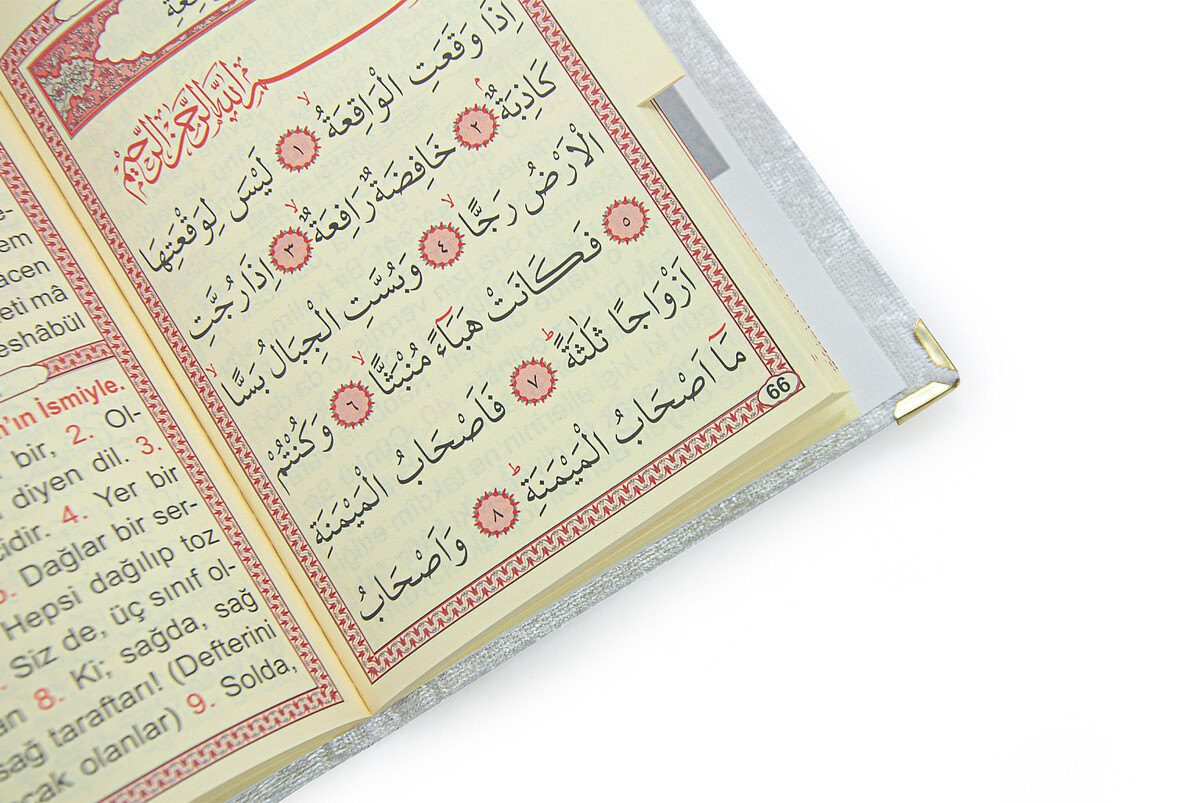 بِسْمِ اللّٰهِ الرَّحْمٰنِ الرَّحِيمِ
اِذَا وَقَعَتِ الْوَاقِعَةُ ﴿١﴾ لَيْسَ لِوَقْعَتِهَا
كَاذِبَةٌ ﴿٢﴾ خَافِضَةٌ رَافِعَةٌ ﴿٣﴾ اِذَا رُجَّتِ
الْاَرْضُ رَجًّا ﴿٤﴾ وَبُسَّتِ الْجِبَالُ بَسًّا
﴿٥﴾ فَكَانَتْ هَبَآءً مُنْبَثًّا ﴿٦﴾ وَكُنْتُمْ
اَزْوَاجًا ثَلٰثَةً ﴿٧﴾ فَاَصْحَابُ الْمَيْمَنَةِ
مَآ اَصْحَابُ الْمَيْمَنَةِ ﴿٨﴾ وَاَصْحَابُ
66
acen
eti mâ
eshâbül
n'ın İsmiyle.
bir, 2. Ol-
diyen dil. 3.
cidir. 4. Yer bir
5. Dağlar bir ser-
Hepsi dağılıp toz
Siz de, üç sınıf ol-
8. Ki; sağda, sağ
sağ taraftarı! (Defterini
cak olanlar) 9. Solda,